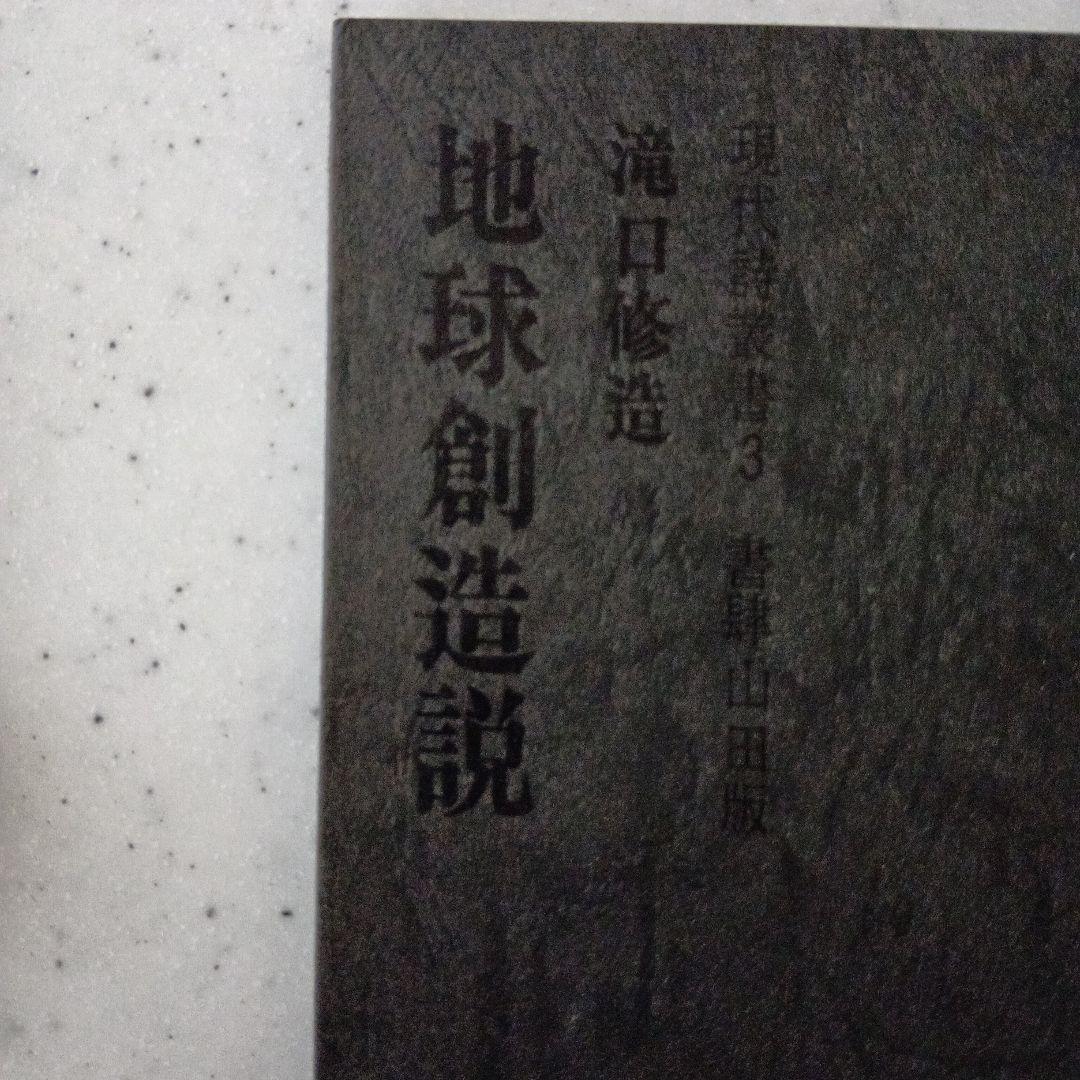 現代詩叢書3　書肆山田版
滝口修造
地球創造説